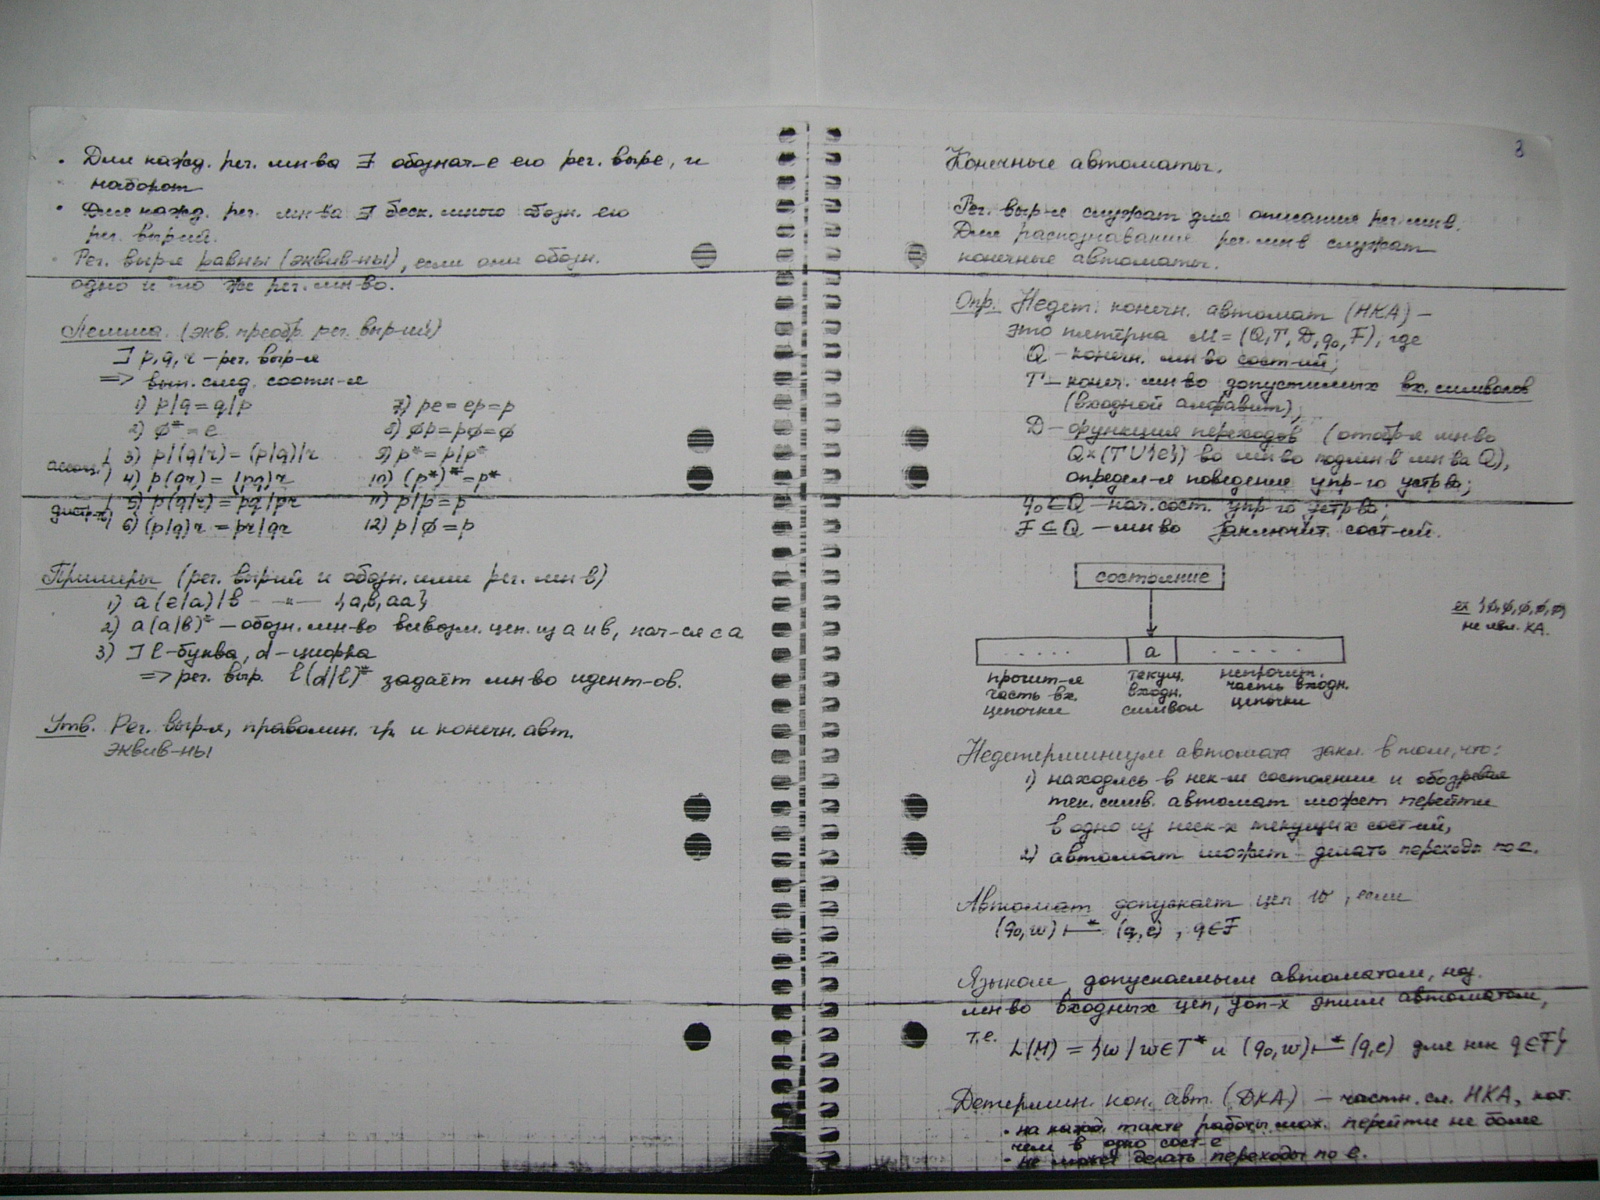 • Для кажд. рег. мн-ва ∃ обознач-е его рег. выр-е, и
наоборот
• Для кажд. рег. мн-ва ∃ беск. много обозн. его
рег. выр-ий.
Рег. выр-я равны (эквив-ны), если они обозн.
одно и то же рег. мн-во.
Лемма. (экв. преобр. рег. выр-ий)
∃ p, q, r – рег. выр-я
=> вып. след. соотн-я
1) p|q = q|p
7) pe = ep = p
2) ø* = e
8) øp = pø = ø
ассоц.
3) p|(q|r) = (p|q)|r
9) p* = p|p*
4) p(qr) = (pq)r
10) (p*)* = p*
5) p(q|r) = pq|pr
11) p|p = p
6) (p|q)r = pr|qr
12) p|ø = p
Примеры (рег. выр-ий и обозн. ими рег. мн-в)
1) a(e|a)|b – –"– – {a,b,aa}
2) a(a|b)* – обозн. мн-во всевозм. цеп. из a и b, нач-ся с a
3) ∃ l – буква, d – цифра
=> рег. выр. l(d|l)* задаёт мн-во идент-ов.
Утв. Рег. выр-я, праволин. гр. и конечн. авт.
эквив-ны
3
Конечные автоматы.
Рег. выр-я служат для описания рег. мн-в.
Для распознавания рег. мн-в служат
конечные автоматы.
Опр. Недет. конечн. автомат (НКА) –
это пятёрка M = (Q, T, D, q₀, F), где
Q – конечн. мн-во сост-ий;
T – конеч. мн-во допустимых вх. символов
(входной алфавит);
D – функция переходов (отобр-я мн-во
Q×(T∪{e}) во мн-во подмн-в мн-ва Q),
определ-я поведение упр-го устр-ва;
q₀ ∈ Q – нач. сост. упр-го устр-ва;
F ⊆ Q – мн-во заключит. сост-ий.
состояние
a
прочит-я
часть вх.
цепочки
текущ.
входн.
символ
непрочит.
часть входн.
цепочки
ex {ø,ø,ø,ø,ø}
не явл. КА.
Недетерминизм автомата закл. в том, что:
1) находясь в нек-м состоянии и обозревая
тек. симв. автомат может перейти
в одно из неск-х текущих сост-ий,
2) автомат может делать переходы по e.
Автомат допускает цеп w, если
(q₀, w) ⊢* (q, e), q∈F
Языком, допускаемым автоматом, наз.
мн-во входных цеп, доп-х этим автоматом,
т.е.
L(M) = {w | w∈T* и (q₀, w) ⊢* (q, e) для нек q∈F}
Детермин. кон. авт. (ДКА) – частн. сл. НКА, кот.
• на кажд. такте работы мож. перейти не более
чем в одно сост-е
• не может делать переходы по e.